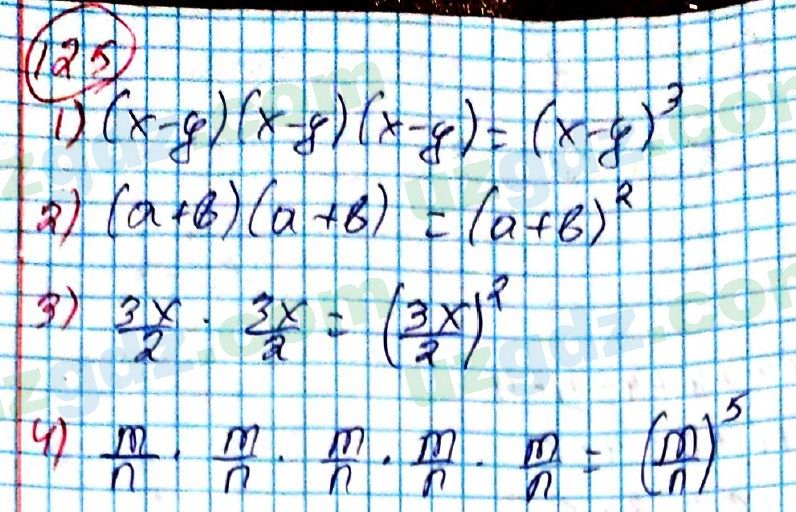 125
1) (x-y)(x-y)(x-y) = (x-y)³
2) (a+b)(a+b) = (a+b)²
3) 3x/2 · 3x/2 = (3x/2)²
4) m/n · m/n · m/n · m/n · m/n = (m/n)⁵
uzgdz.com